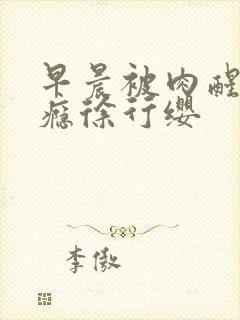 早晨被肉醒
瘾徐行缨
李傲